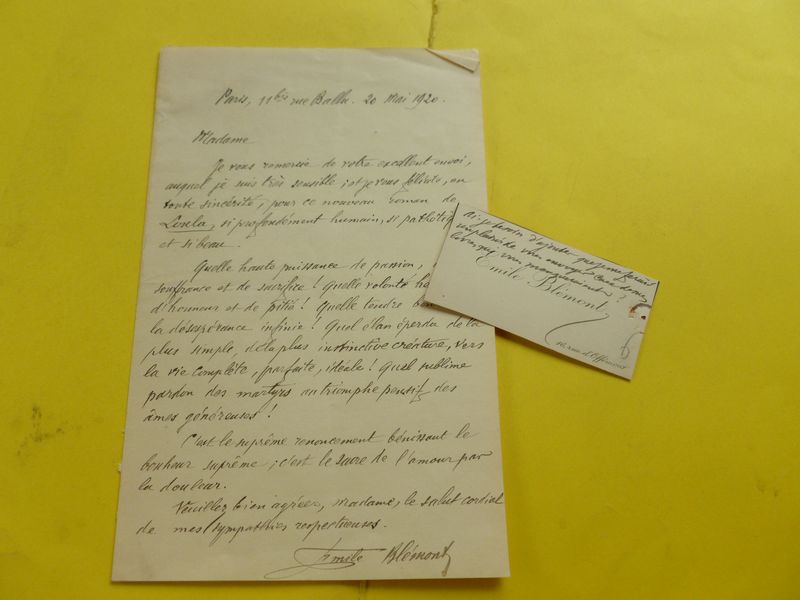 Paris, 11bis rue Ballu. 20 Mai 1920.
Madame
Je vous remercie de votre excellent envoi,
auquel je suis très sensible, et je vous félicite, en
toute sincérité, pour ce nouveau roman de
Lesela, si profondément humain, si pathéti
et si beau.
Quelle haute puissance de passion,
souffrance et de sacrifice! Quelle volonté
d'honneur et de pitié! Quelle tendre
la désespérance infinie! Quel élan éperdu de la
plus simple, de la plus instinctive créature, vers
la vie complète, parfaite, idéale! Quel sublime
pardon des martyrs au triomphe pensif des
âmes généreuses!
C'est le suprême renoncement bénissant le
bonheur suprême; c'est le sacre de l'amour par
la douleur.
Veuillez bien agréer, Madame, le salut cordial
de mes sympathies respectueuses.
Emile Blémont
ai-je besoin d'ajouter que
un plaisir de vous envoyer
livres qui vous manqueraient?
Emile Blémont
16, rue d'Offémont